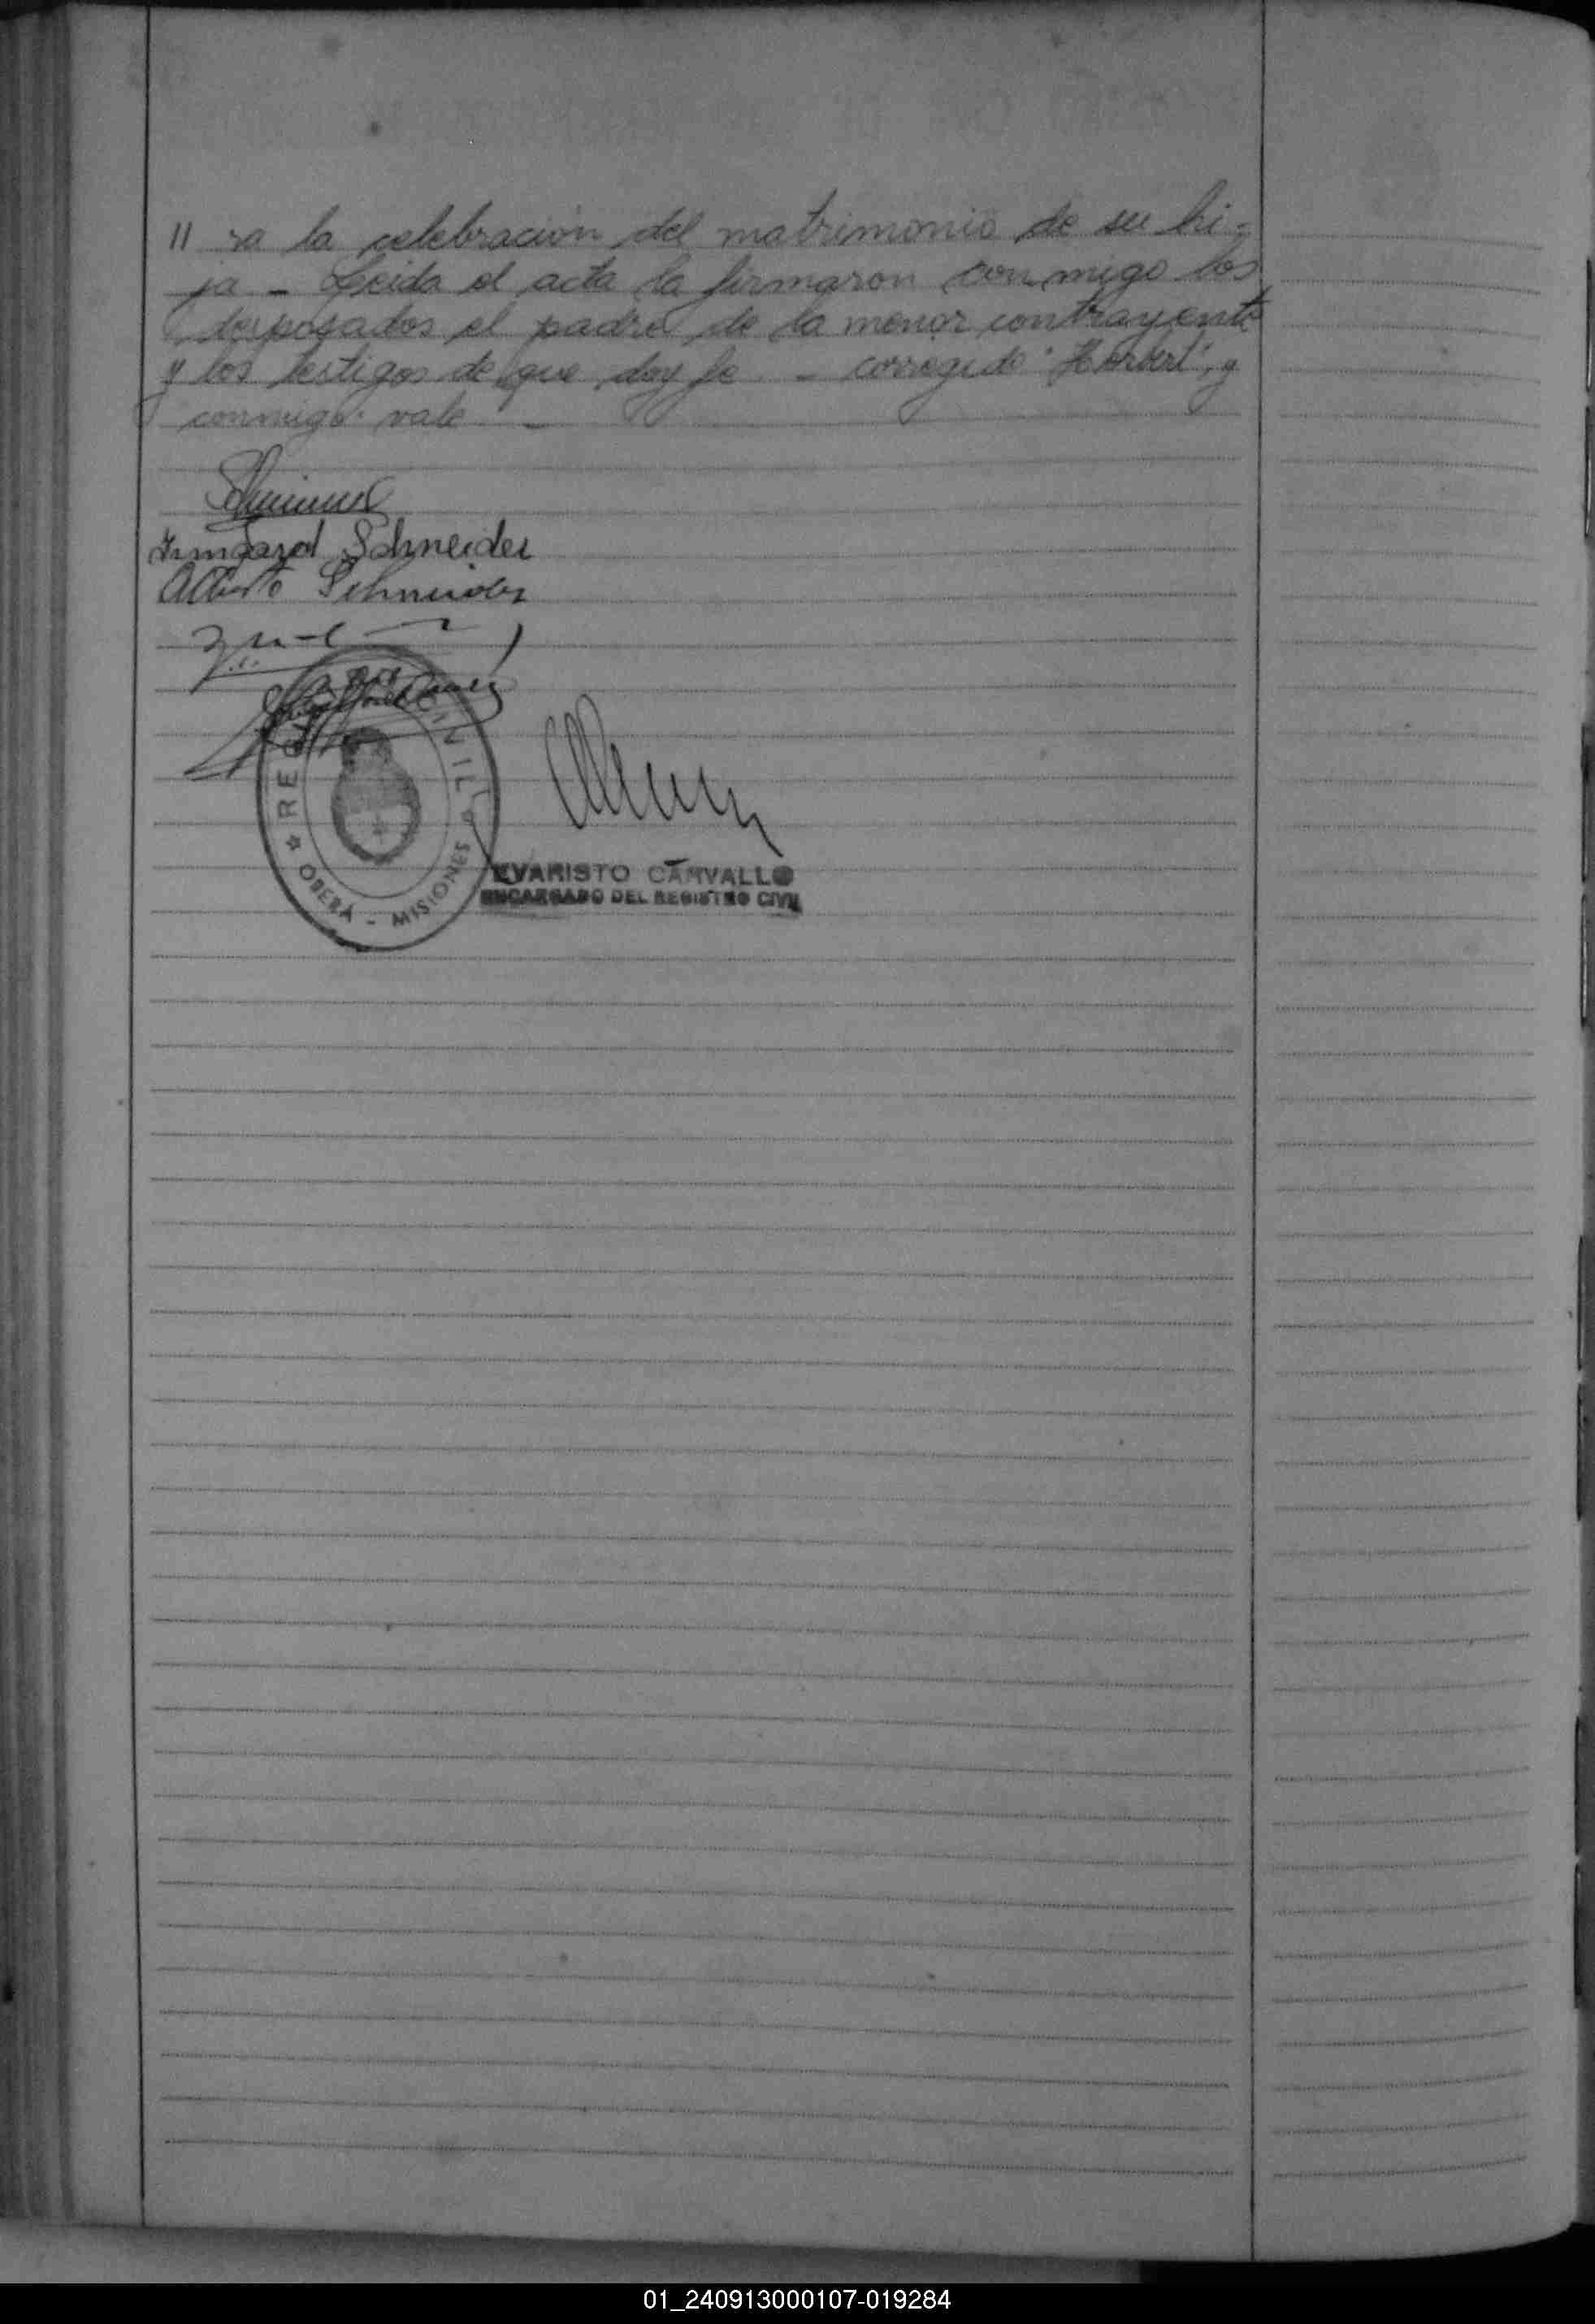 11 ra la celebración del matrimonio de su hi-
ja - Leida el acta la firmaron con migo los
desposados el padre de la menor contrayente
y los testigos de que doy fe - corregido "Herbert", y
conmigo. vale -
Irmgard Schneider
Alberto Schneider
REG CIVIL
OBERÁ - MISIONES
EVARISTO CARVALLO
ENCARGADO DEL REGISTRO CIVIL
01_240913000107-019284